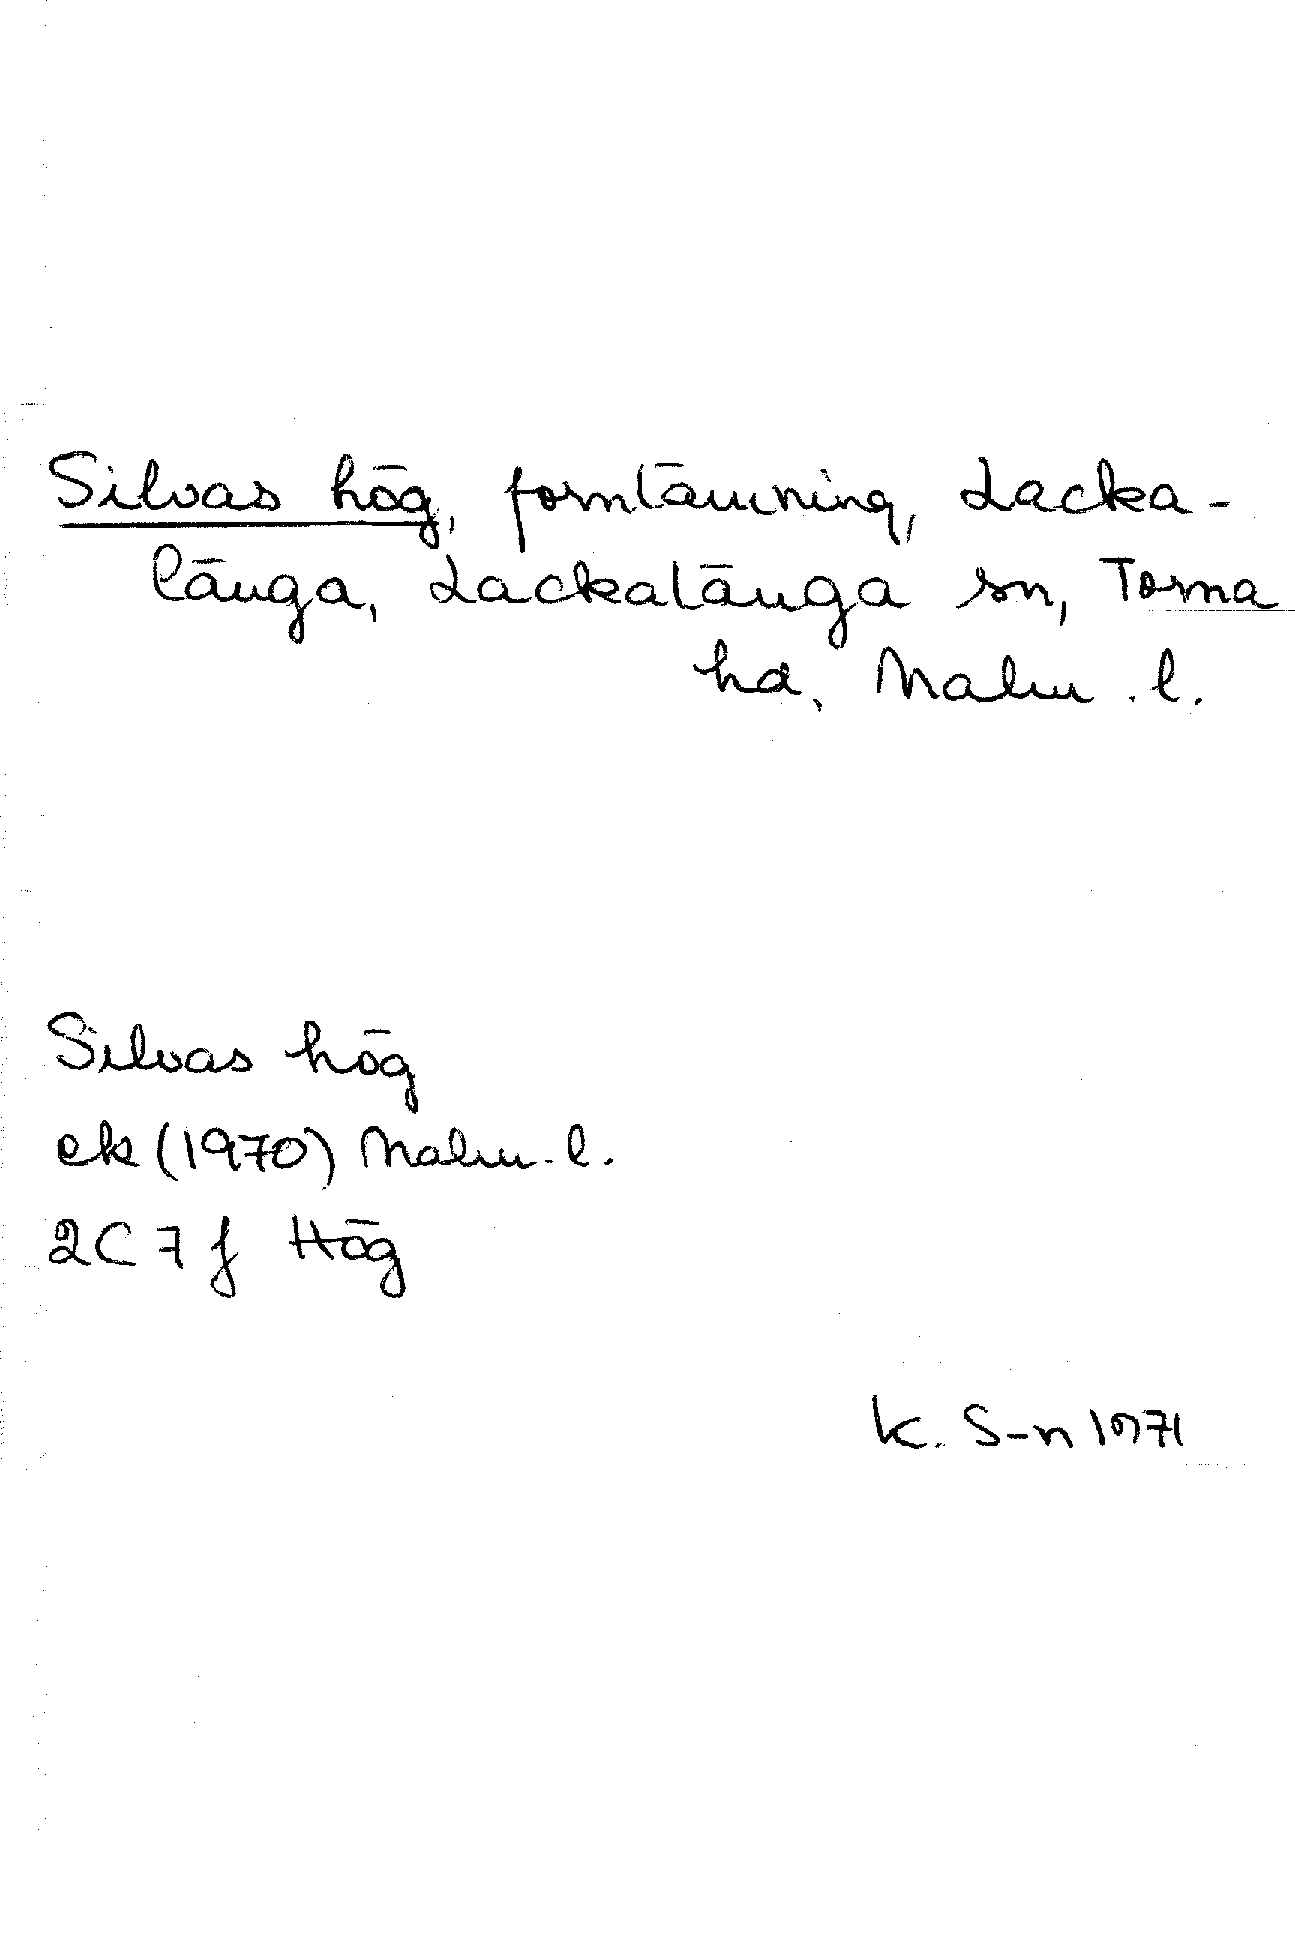 Silvas hög, fornlämning, Lacka-
länga, Lackalänga sn, Torna
hd, Malm. l.
Silvas hög
ek (1970) Malm. l.
2C 7 f Hög
K. S-n 1971